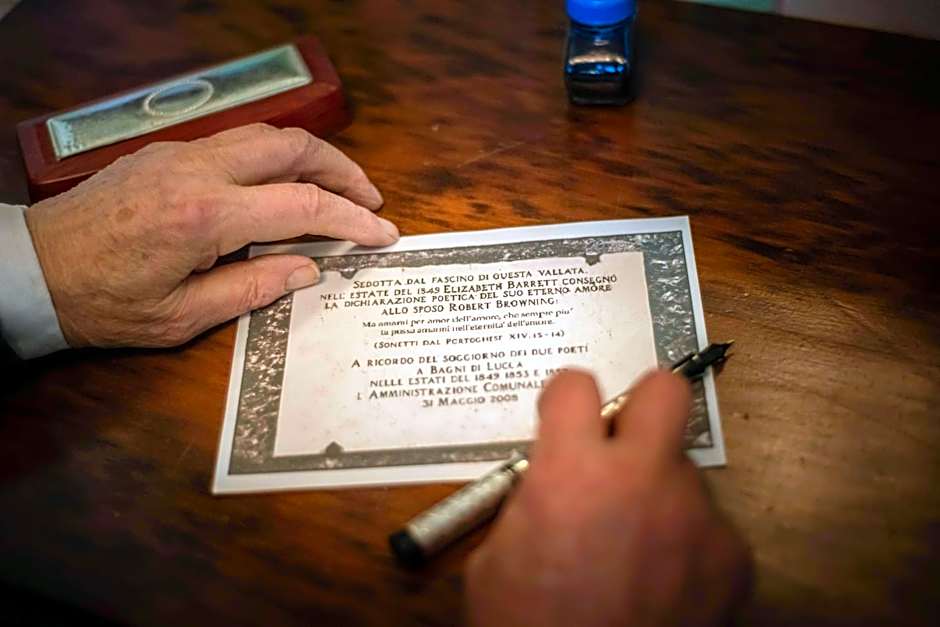 SEDOTTA DAL FASCINO DI QUESTA VALLATA,
NELL'ESTATE DEL 1849 ELIZABETH BARRETT CONSEGNÒ
LA DICHIARAZIONE POETICA DEL SUO ETERNO AMORE
ALLO SPOSO ROBERT BROWNING:
Ma amami per amor dell'amore, che sempre piu'
tu possa amarmi nell'eternita' dell'amore.
(SONETTI DAL PORTOGHESE XIV. 13-14)
A RICORDO DEL SOGGIORNO DEI DUE POETI
A BAGNI DI LUCCA
NELLE ESTATI DEL 1849 1853 E
L'AMMINISTRAZIONE COMUNALE
31 MAGGIO 2008